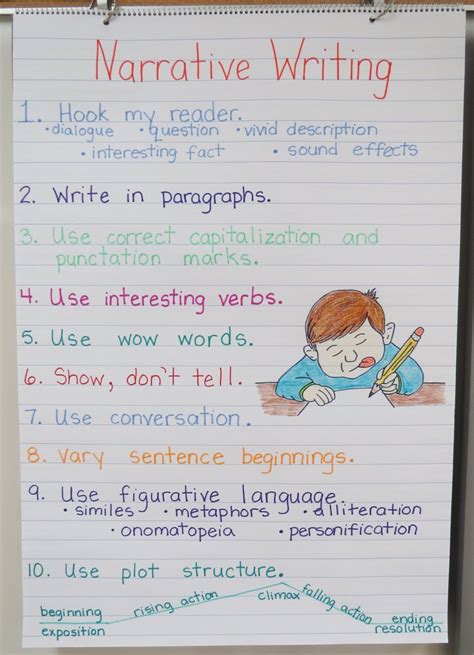 Narrative Writing
1. Hook my reader.
• dialogue • question • vivid description
• interesting fact • sound effects
2. Write in paragraphs.
3. Use correct capitalization and
punctation marks.
4. Use interesting verbs.
5. Use wow words.
6. Show, don't tell.
7. Use conversation.
8. Vary sentence beginnings.
9. Use figurative language.
• similes • metaphors • alliteration
• onomatopeia • personification
10. Use plot structure.
beginning rising action climax falling action ending
exposition resolution